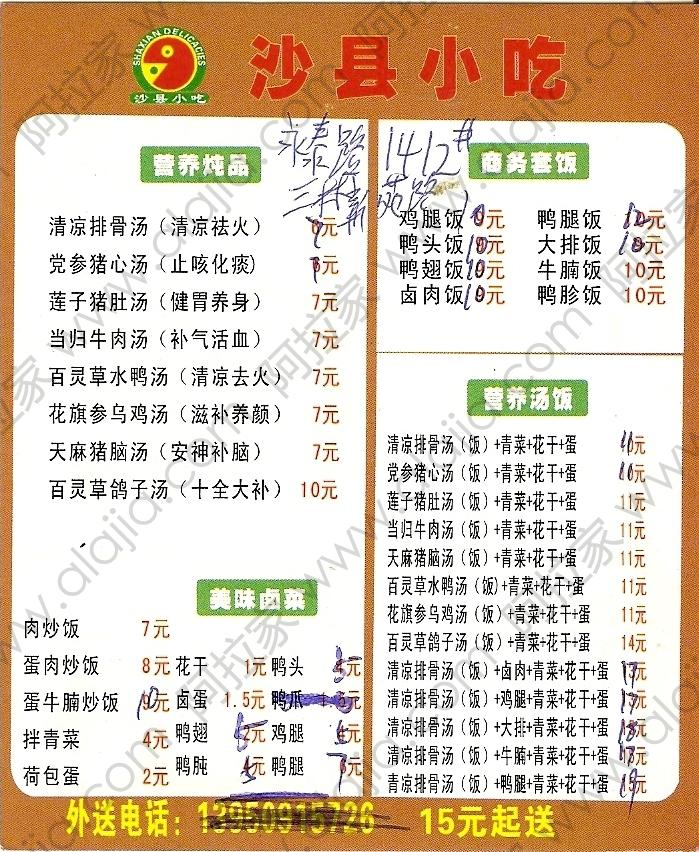 SHAXIAN DELICACIES
沙县小吃
沙县小吃
永泰路 1412#
营养炖品
清凉排骨汤（清凉祛火） 元
党参猪心汤（止咳化痰） 元
莲子猪肚汤（健胃养身） 7元
当归牛肉汤（补气活血） 7元
百灵草水鸭汤（清凉去火） 7元
花旗参乌鸡汤（滋补养颜） 7元
天麻猪脑汤（安神补脑） 7元
百灵草鸽子汤（十全大补） 10元
美味卤菜
肉炒饭 7元
蛋肉炒饭 8元 花干 1元 鸭头 5元
蛋牛腩炒饭 10元 卤蛋 1.5元 鸭爪
拌青菜 4元 鸭翅 5元 鸡腿 元
荷包蛋 2元 鸭肫 5元 鸭腿 7元
商务套饭
鸡腿饭 元 鸭腿饭 12元
鸭头饭 10元 大排饭 10元
鸭翅饭 10元 牛腩饭 10元
卤肉饭 10元 鸭胗饭 10元
营养汤饭
清凉排骨汤（饭）+青菜+花干+蛋 元
党参猪心汤（饭）+青菜+花干+蛋 元
莲子猪肚汤（饭）+青菜+花干+蛋 11元
当归牛肉汤（饭）+青菜+花干+蛋 11元
天麻猪脑汤（饭）+青菜+花干+蛋 11元
百灵草水鸭汤（饭）+青菜+花干+蛋 11元
花旗参乌鸡汤（饭）+青菜+花干+蛋 11元
百灵草鸽子汤（饭）+青菜+花干+蛋 14元
清凉排骨汤（饭）+卤肉+青菜+花干+蛋 17元
清凉排骨汤（饭）+鸡腿+青菜+花干+蛋 17元
清凉排骨汤（饭）+大排+青菜+花干+蛋 18元
清凉排骨汤（饭）+牛腩+青菜+花干+蛋 18元
青凉排骨汤（饭）+鸭腿+青菜+花干+蛋 19元
外送电话：13950915726 15元起送
阿拉家 www.alajia.com